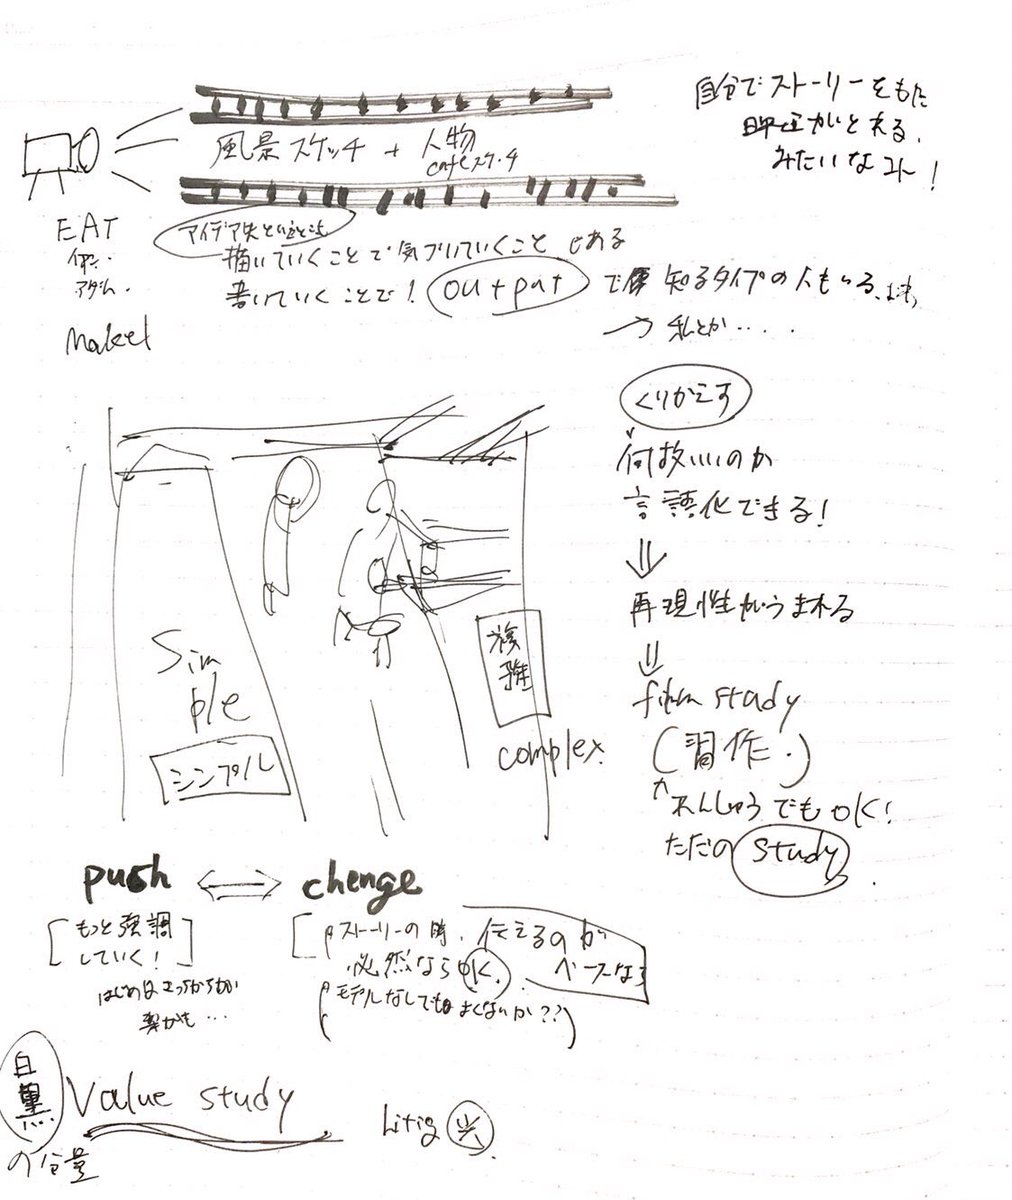 自分でストーリーをもた
みたいなコト!
風景スケッチ + 人物
cafeスケッチ
EAT
アダム.
アイデア
描いていくことで気づいていくこと である
書いていくことで! output で 知るタイプの人もいる.
→ 私とか....
Makel
くりかえす
何故いいのか
言語化できる!
⇓
再現性がうまれる
⇓
film study
(習作.)
れんしゅうでもOK!
ただの study.
Sim
ple
シンプル
複雑
complex.
push ⇔ chenge
もっと強調
していく!
はじめはこっちからが
ストーリーの時. 伝えるのが
必然ならOK. ベースなら
モデルなしでもよくないか??
白黒
の分量
Value study